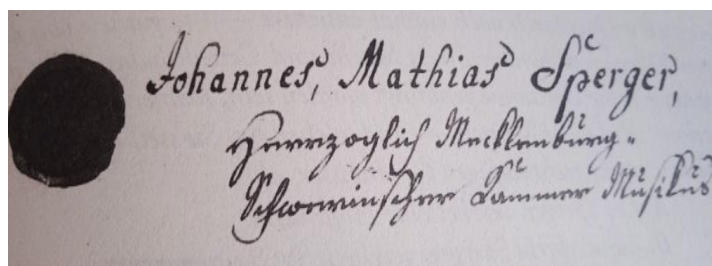 Johannes, Mathias Sperger,
Herrzoglich Mecklenburg-
Schwerinscher Kammer Musikus